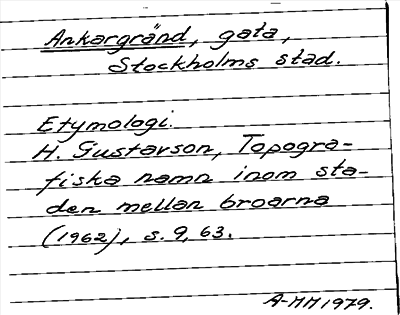 Ankargränd, gata,
Stockholms stad.
Etymologi.
H. Gustavson, Topogra-
fiska namn inom sta-
den mellan broarna
(1962), s. 9, 63.
A-MM 1979.